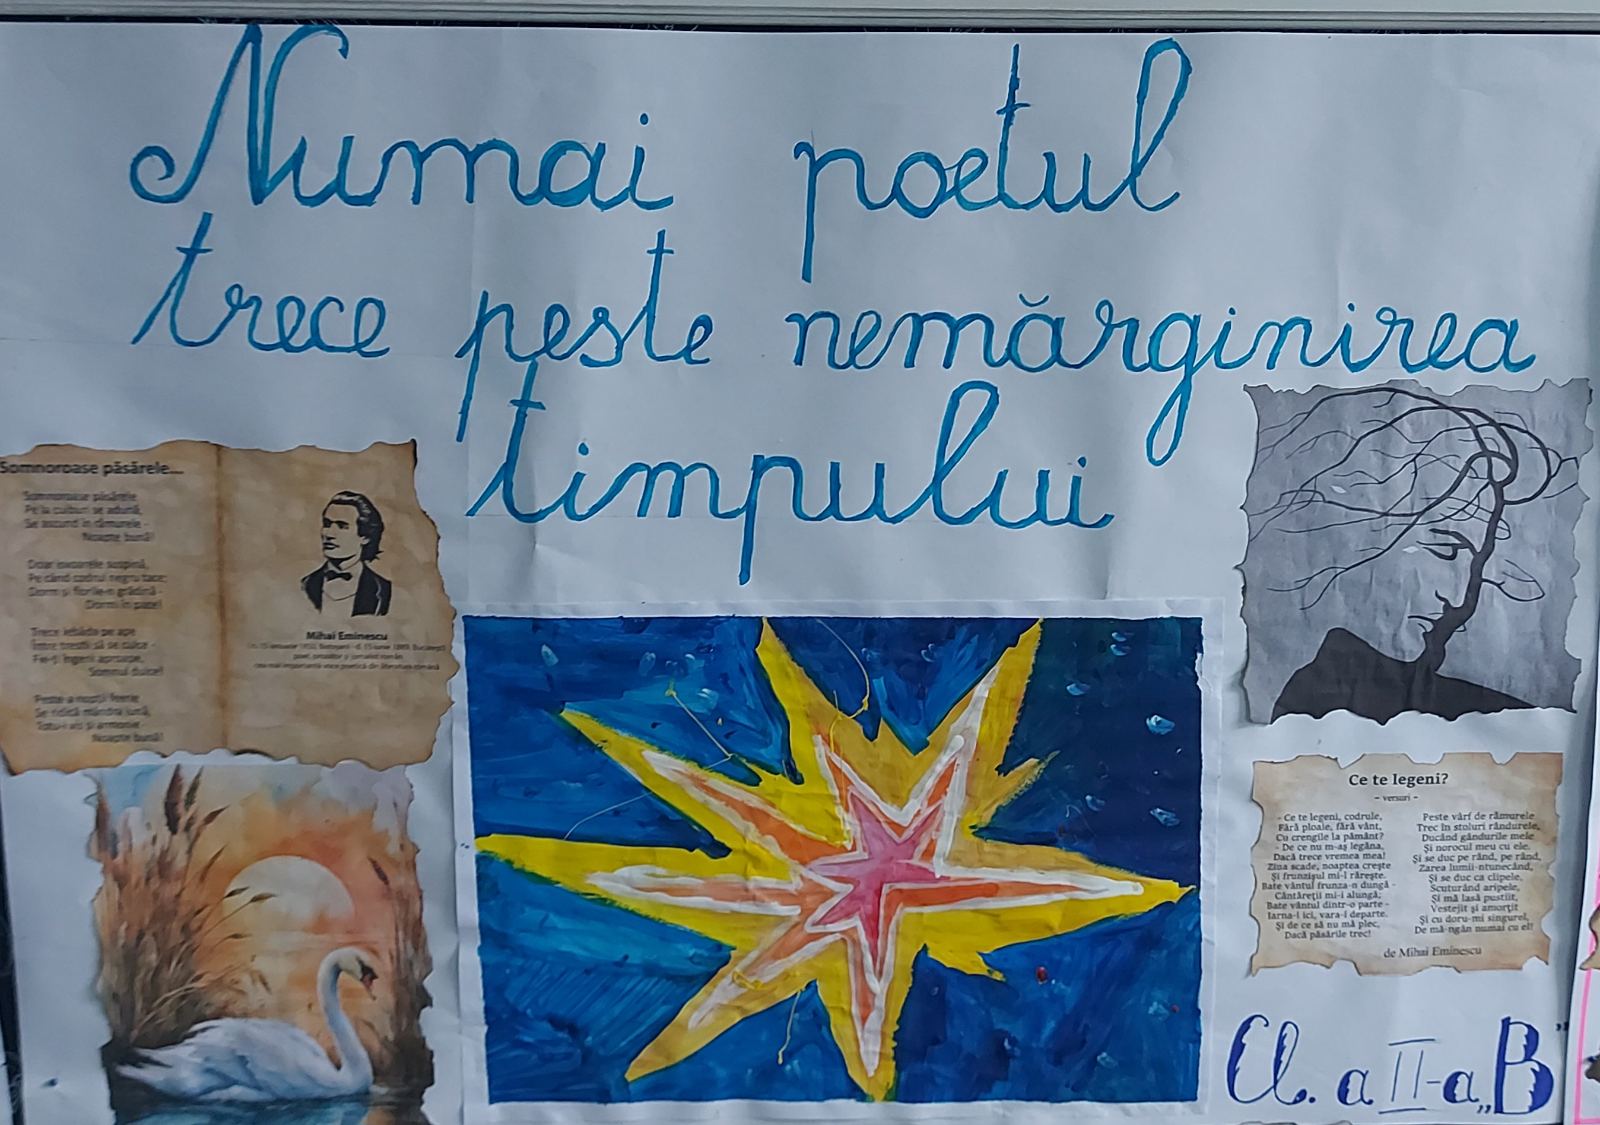 Numai poetul
trece peste nemărginirea
timpului
Somnoroase păsărele...
Somnoroase păsărele
Pe la cuiburi se adună,
Se ascund în rămurele -
Noapte bună!
Doar izvoarele suspină,
Pe când codrul negru tace;
Dorm și florile-n grădină -
Dormi în pace!
Trece lebăda pe ape
Între trestii să se culce -
Fie-ți îngerii aproape,
Somnul dulce!
Peste-a nopții feerie
Se ridică mândra lună,
Totu-i vis și armonie -
Noapte bună!
Mihai Eminescu
n. 15 ianuarie 1850, Botoșani - d. 15 iunie 1889, București)
poet, prozator și jurnalist român,
cea mai importantă voce poetică din literatura română
Ce te legeni?
- versuri -
- Ce te legeni, codrule,
Fără ploaie, fără vânt,
Cu crengile la pământ?
- De ce nu m-aș legăna,
Dacă trece vremea mea!
Ziua scade, noaptea crește
Și frunzișul mi-l rărește.
Bate vântul frunza-n dungă -
Cântăreții mi-i alungă;
Bate vântul dintr-o parte -
Iarna-i ici, vara-i departe.
Și de ce să nu mă plec,
Dacă păsările trec!
Peste vârf de rămurele
Trec în stoluri rândurele,
Ducând gândurile mele
Și norocul meu cu ele.
Și se duc pe rând, pe rând,
Zarea lumii-ntunecând,
Și se duc ca clipele,
Scuturând aripele,
Și mă lasă pustiit,
Vestejit și amorțit
Și cu doru-mi singurel,
De mă-ngân numai cu el!
de Mihai Eminescu
Cl. a II-a „B”